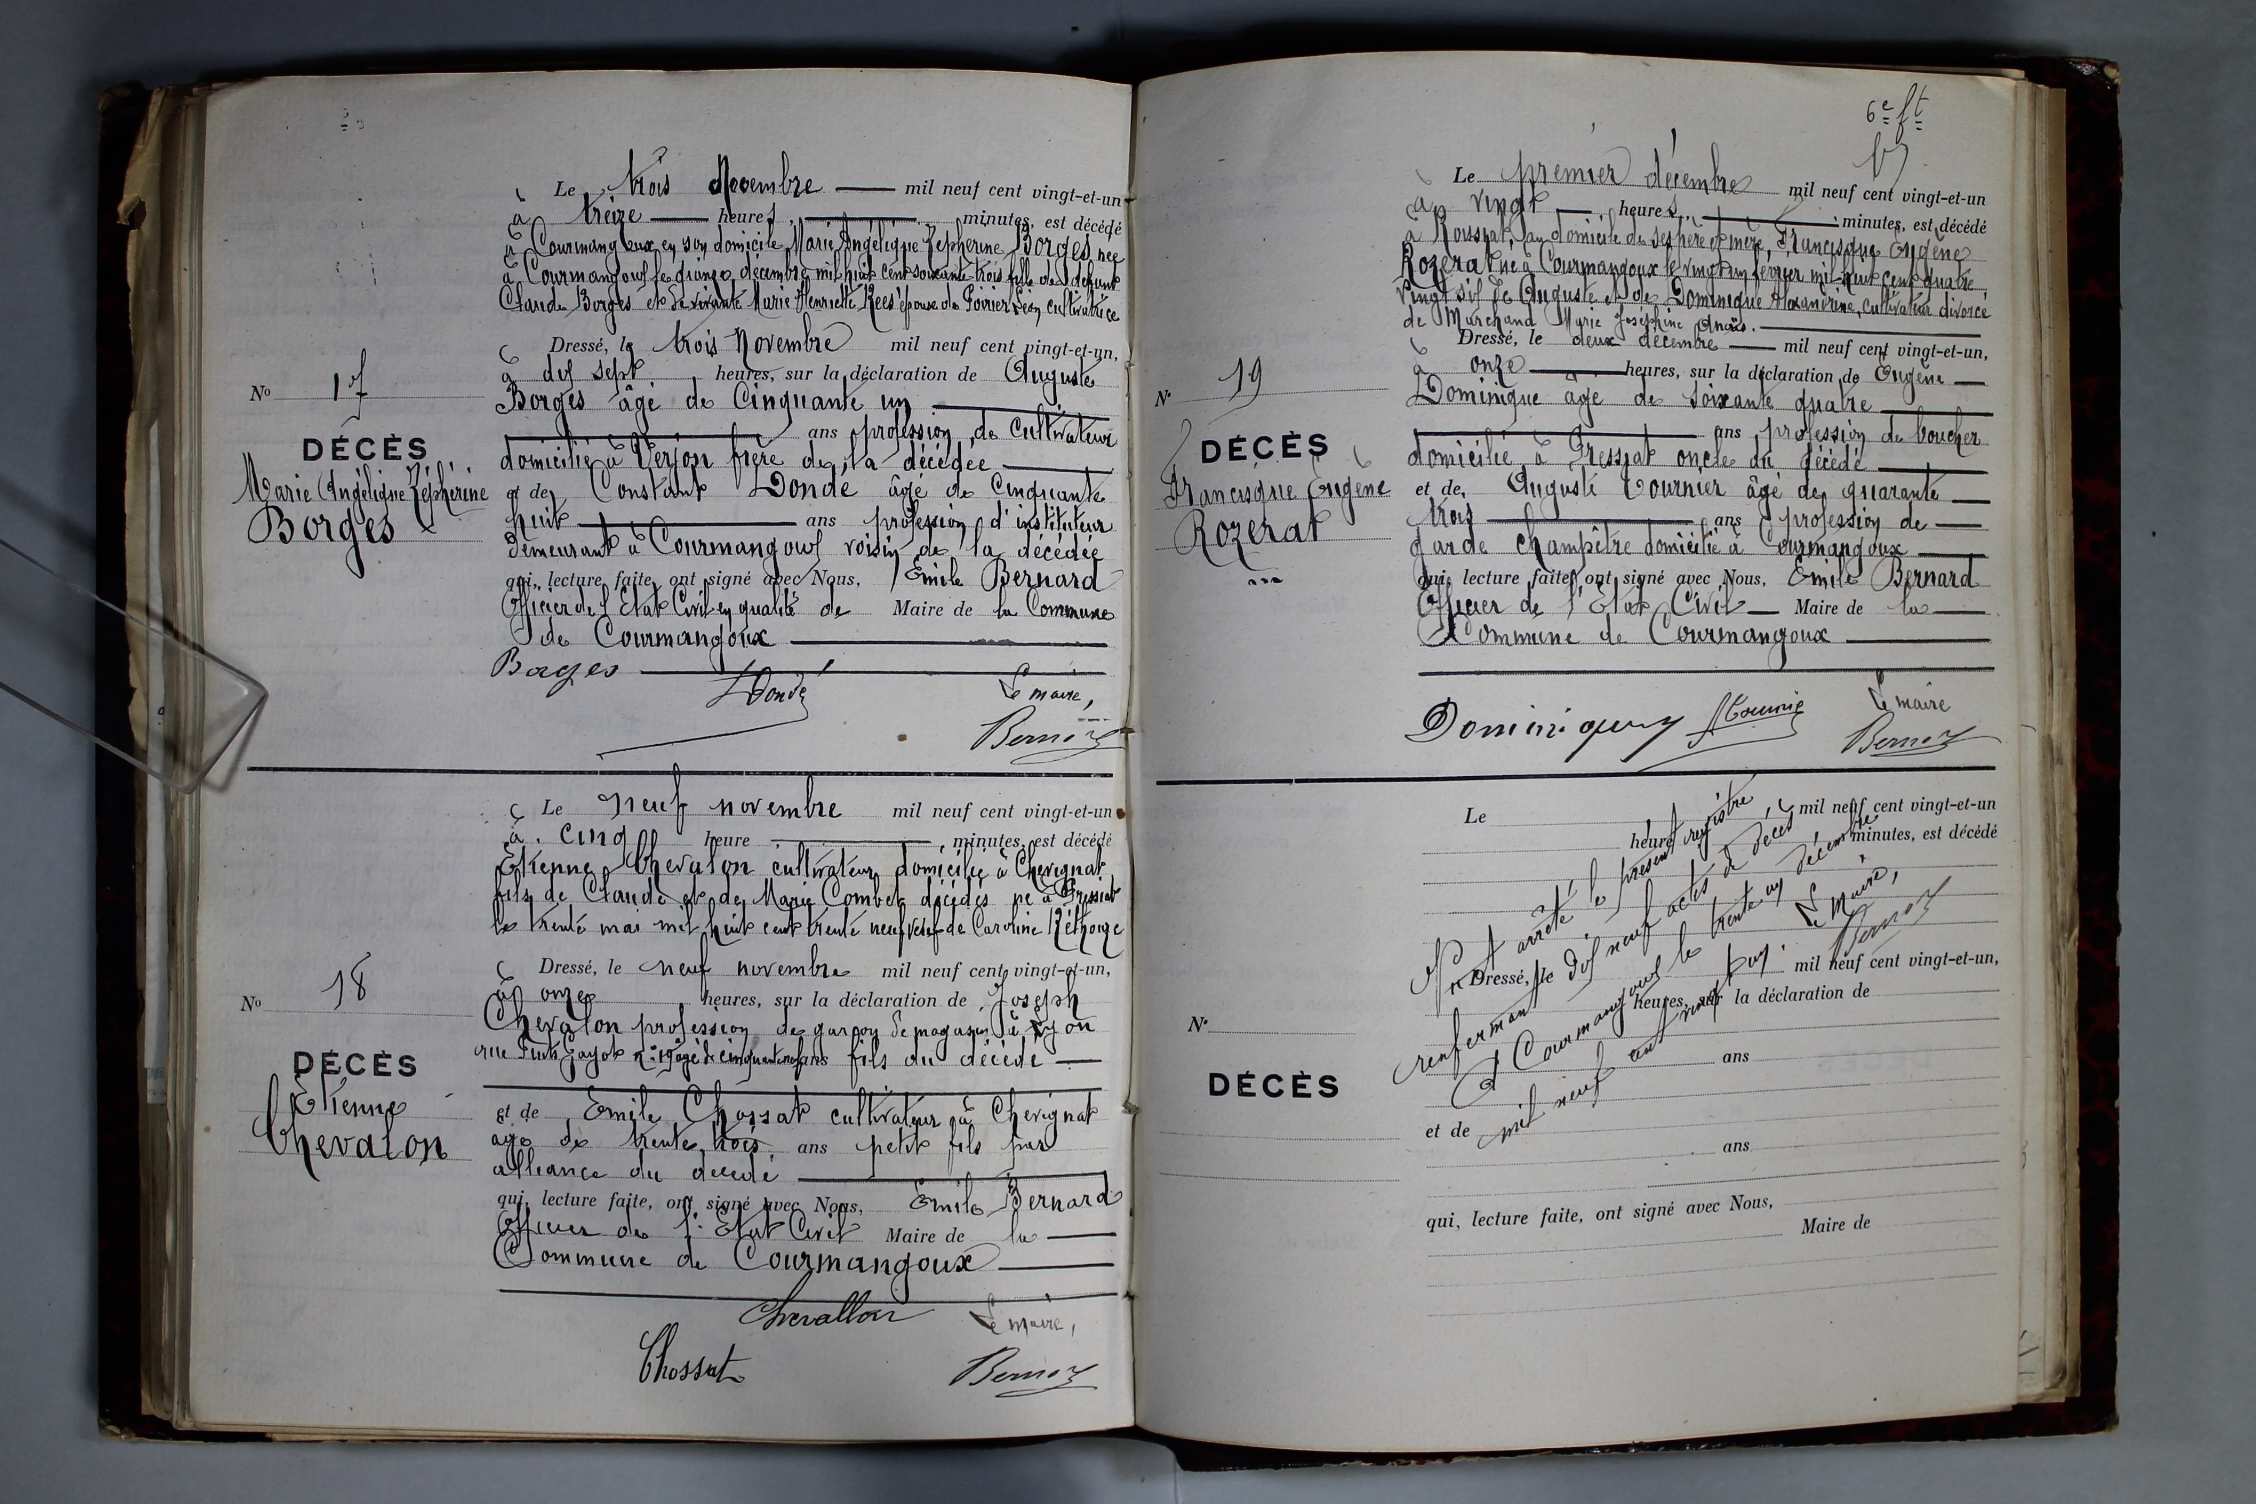 Le trois Novembre mil neuf cent vingt-et-un
à treize heures, minutes, est décédé
à Courmangoux en son domicile Marie Angélique Zépherine Borges née
à Courmangoux le quinze décembre mil huit cent soixante trois fille de défunt
Claude Borges et de vivante Marie Henriette épouse de Poirier Léon cultivatrice
Dressé, le trois Novembre mil neuf cent vingt-et-un,
à dix sept heures, sur la déclaration de Auguste
No 17
Borges âgé de Cinquante un
ans profession de Cultivateur
DÉCÈS
domicilié à Verjon frère de la décédée
Marie Angélique Zéphérine
Borges
et de Constant Donde âgé de Cinquante
huit ans profession d'instituteur
demeurant à Courmangoux voisin de la décédée
qui, lecture faite, ont signé avec Nous, Emile Bernard
Officier de l'Etat Civil en qualité de Maire de la Commune
de Courmangoux
Borges
Dondé
Le maire,
Le neuf novembre mil neuf cent vingt-et-un
à cinq heure minutes, est décédé
Etienne Chevalon cultivateur domicilié à Chevignat
fils de Claude et de Marie Combet décédés né à Pressiat
le trente mai mil huit cent trente neuf veuf de Caroline
Dressé, le neuf novembre mil neuf cent vingt-et-un,
No 18
à onze heures, sur la déclaration de Joseph
Chevalon profession de garçon de magasin à Lyon
rue Puits Gayot n° 19 âgé de cinquante neuf ans fils du décédé
DÉCÈS
Etienne
Chevalon
et de Emile Chossat cultivateur à Chevignat
age de trente trois ans petit fils par
alliance du décédé
qui, lecture faite, ont signé avec Nous, Emile Bernard
Officier de l'Etat Civil Maire de la
Commune de Courmangoux
Chevallon
Le maire,
Chossat
6e ft
Le premier décembre mil neuf cent vingt-et-un
à vingt heures, minutes, est décédé
à Roissiat, au domicile de ses père et mère, Francisque Eugène
Rozerat né à Courmangoux le vingt un février mil huit cent quatre
vingt six de Auguste et de Dominique Alexandrine, cultivateur divorcé
de Marchand Marie Joséphine Anaïs.
Dressé, le deux décembre mil neuf cent vingt-et-un,
à onze heures, sur la déclaration de Eugène
No 19
Dominique âgé de soixante quatre
ans profession de boucher
DÉCÈS
domicilié à Pressiat oncle du décédé
Francisque Eugène
Rozerat
et de Auguste Tournier âgé de quarante
trois ans profession de
garde champêtre domicilié à Courmangoux
qui, lecture faite, ont signé avec Nous, Emile Bernard
Officier de l'Etat Civil Maire de la
Commune de Courmangoux
Le maire
Le mil neuf cent vingt-et-un
heure minutes, est décédé
arrêté le présent registre
renfermant dix neuf actes de décès
A Courmangoux le trente un décembre
mil neuf cent vingt un.
Le Maire,
Dressé, le mil neuf cent vingt-et-un,
heures, sur la déclaration de
No
ans
DÉCÈS
et de
ans
qui, lecture faite, ont signé avec Nous,
Maire de